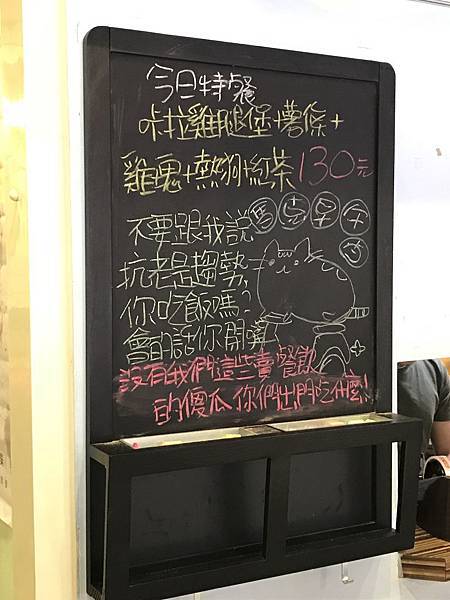 今日特餐
咔拉雞腿堡+薯條+
雞塊+熱狗+紅茶130元
不要跟我說
抗老是趨勢,
你吃飯嗎?
會的話你閉嘴
沒有我們這些賣餐飲
的傻瓜你們出門吃什麼!